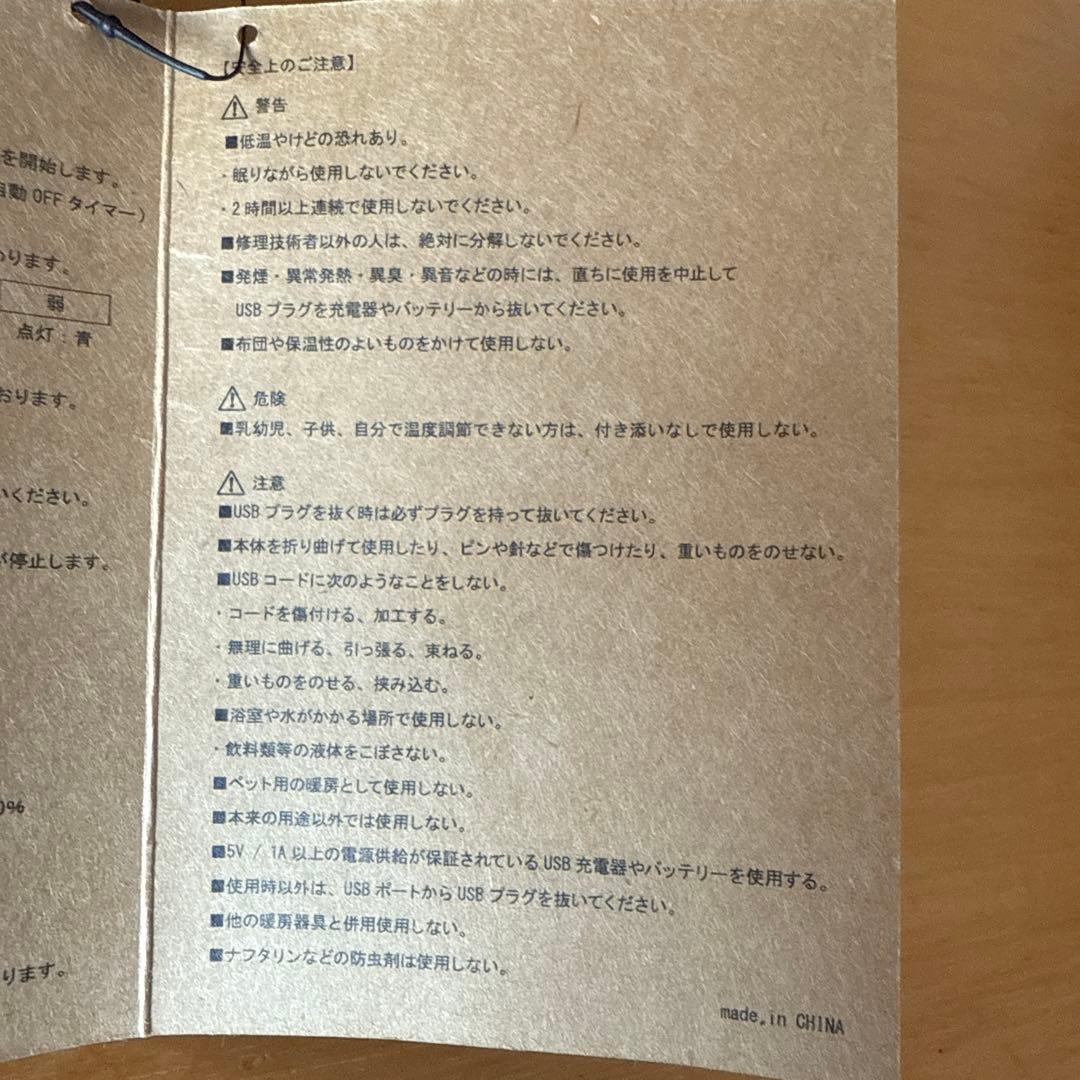 を開始します。
自動 OFF タイマー)
ります。
弱
点灯：青
おります。
ください。
停止します。
0%
ります。
【安全上のご注意】
⚠ 警告
■低温やけどの恐れあり。
・眠りながら使用しないでください。
・2時間以上連続で使用しないでください。
■修理技術者以外の人は、絶対に分解しないでください。
■発煙・異常発熱・異臭・異音などの時には、直ちに使用を中止して
USB プラグを充電器やバッテリーから抜いてください。
■布団や保温性のよいものをかけて使用しない。
⚠ 危険
■乳幼児、子供、自分で温度調節できない方は、付き添いなしで使用しない。
⚠ 注意
■USB プラグを抜く時は必ずプラグを持って抜いてください。
■本体を折り曲げて使用したり、ピンや針などで傷つけたり、重いものをのせない。
■USB コードに次のようなことをしない。
・コードを傷付ける、加工する。
・無理に曲げる、引っ張る、束ねる。
・重いものをのせる、挟み込む。
■浴室や水がかかる場所で使用しない。
・飲料類等の液体をこぼさない。
■ペット用の暖房として使用しない。
■本来の用途以外では使用しない。
■5V / 1A 以上の電源供給が保証されている USB 充電器やバッテリーを使用する。
■使用時以外は、USB ポートから USB プラグを抜いてください。
■他の暖房器具と併用使用しない。
■ナフタリンなどの防虫剤は使用しない。
made.in CHINA